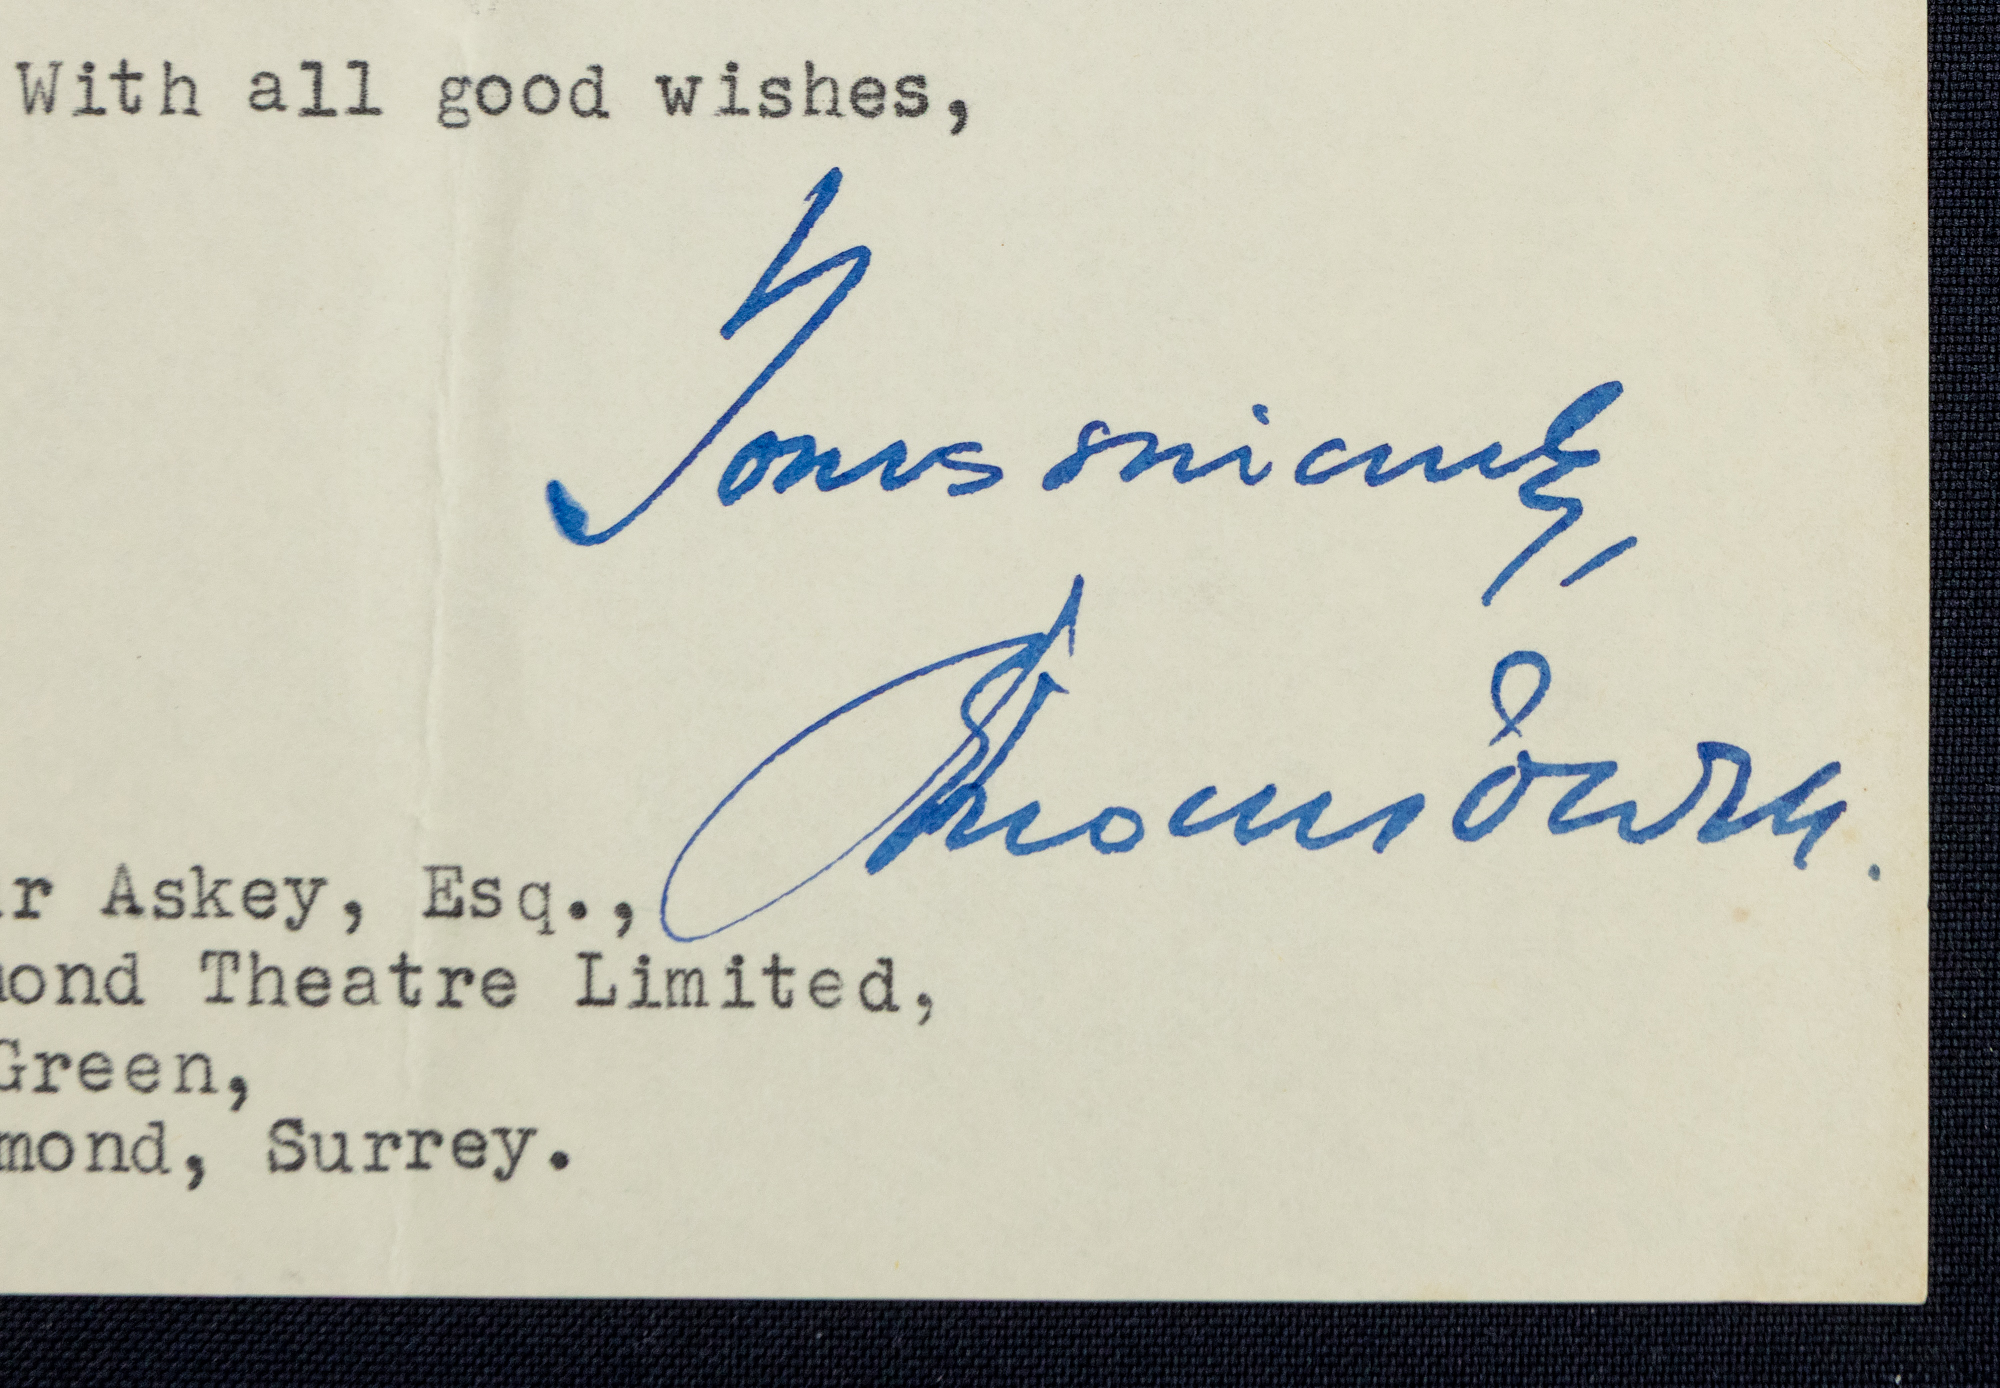 With all good wishes,
Yours sincerely,
r Askey, Esq.,
ond Theatre Limited,
Green,
mond, Surrey.